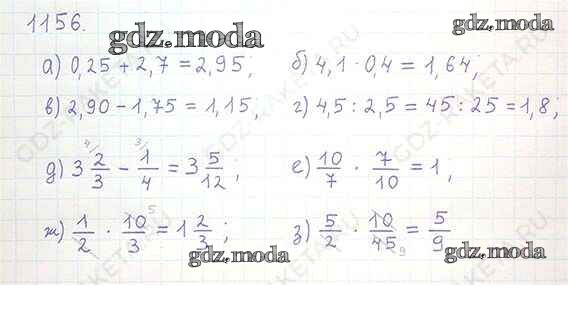 1156.
gdz.moda
gdz.moda
а) 0,25 + 2,7 = 2,95; б) 4,1 · 0,4 = 1,64;
в) 2,90 − 1,75 = 1,15; г) 4,5 : 2,5 = 45 : 25 = 1,8;
д) 3 2/3 − 1/4 = 3 5/12; е) 10/7 · 7/10 = 1;
ж) 1/2 · 10/3 = 1 2/3; з) 5/2 · 10/45 = 5/9
gdz.moda
gdz.moda